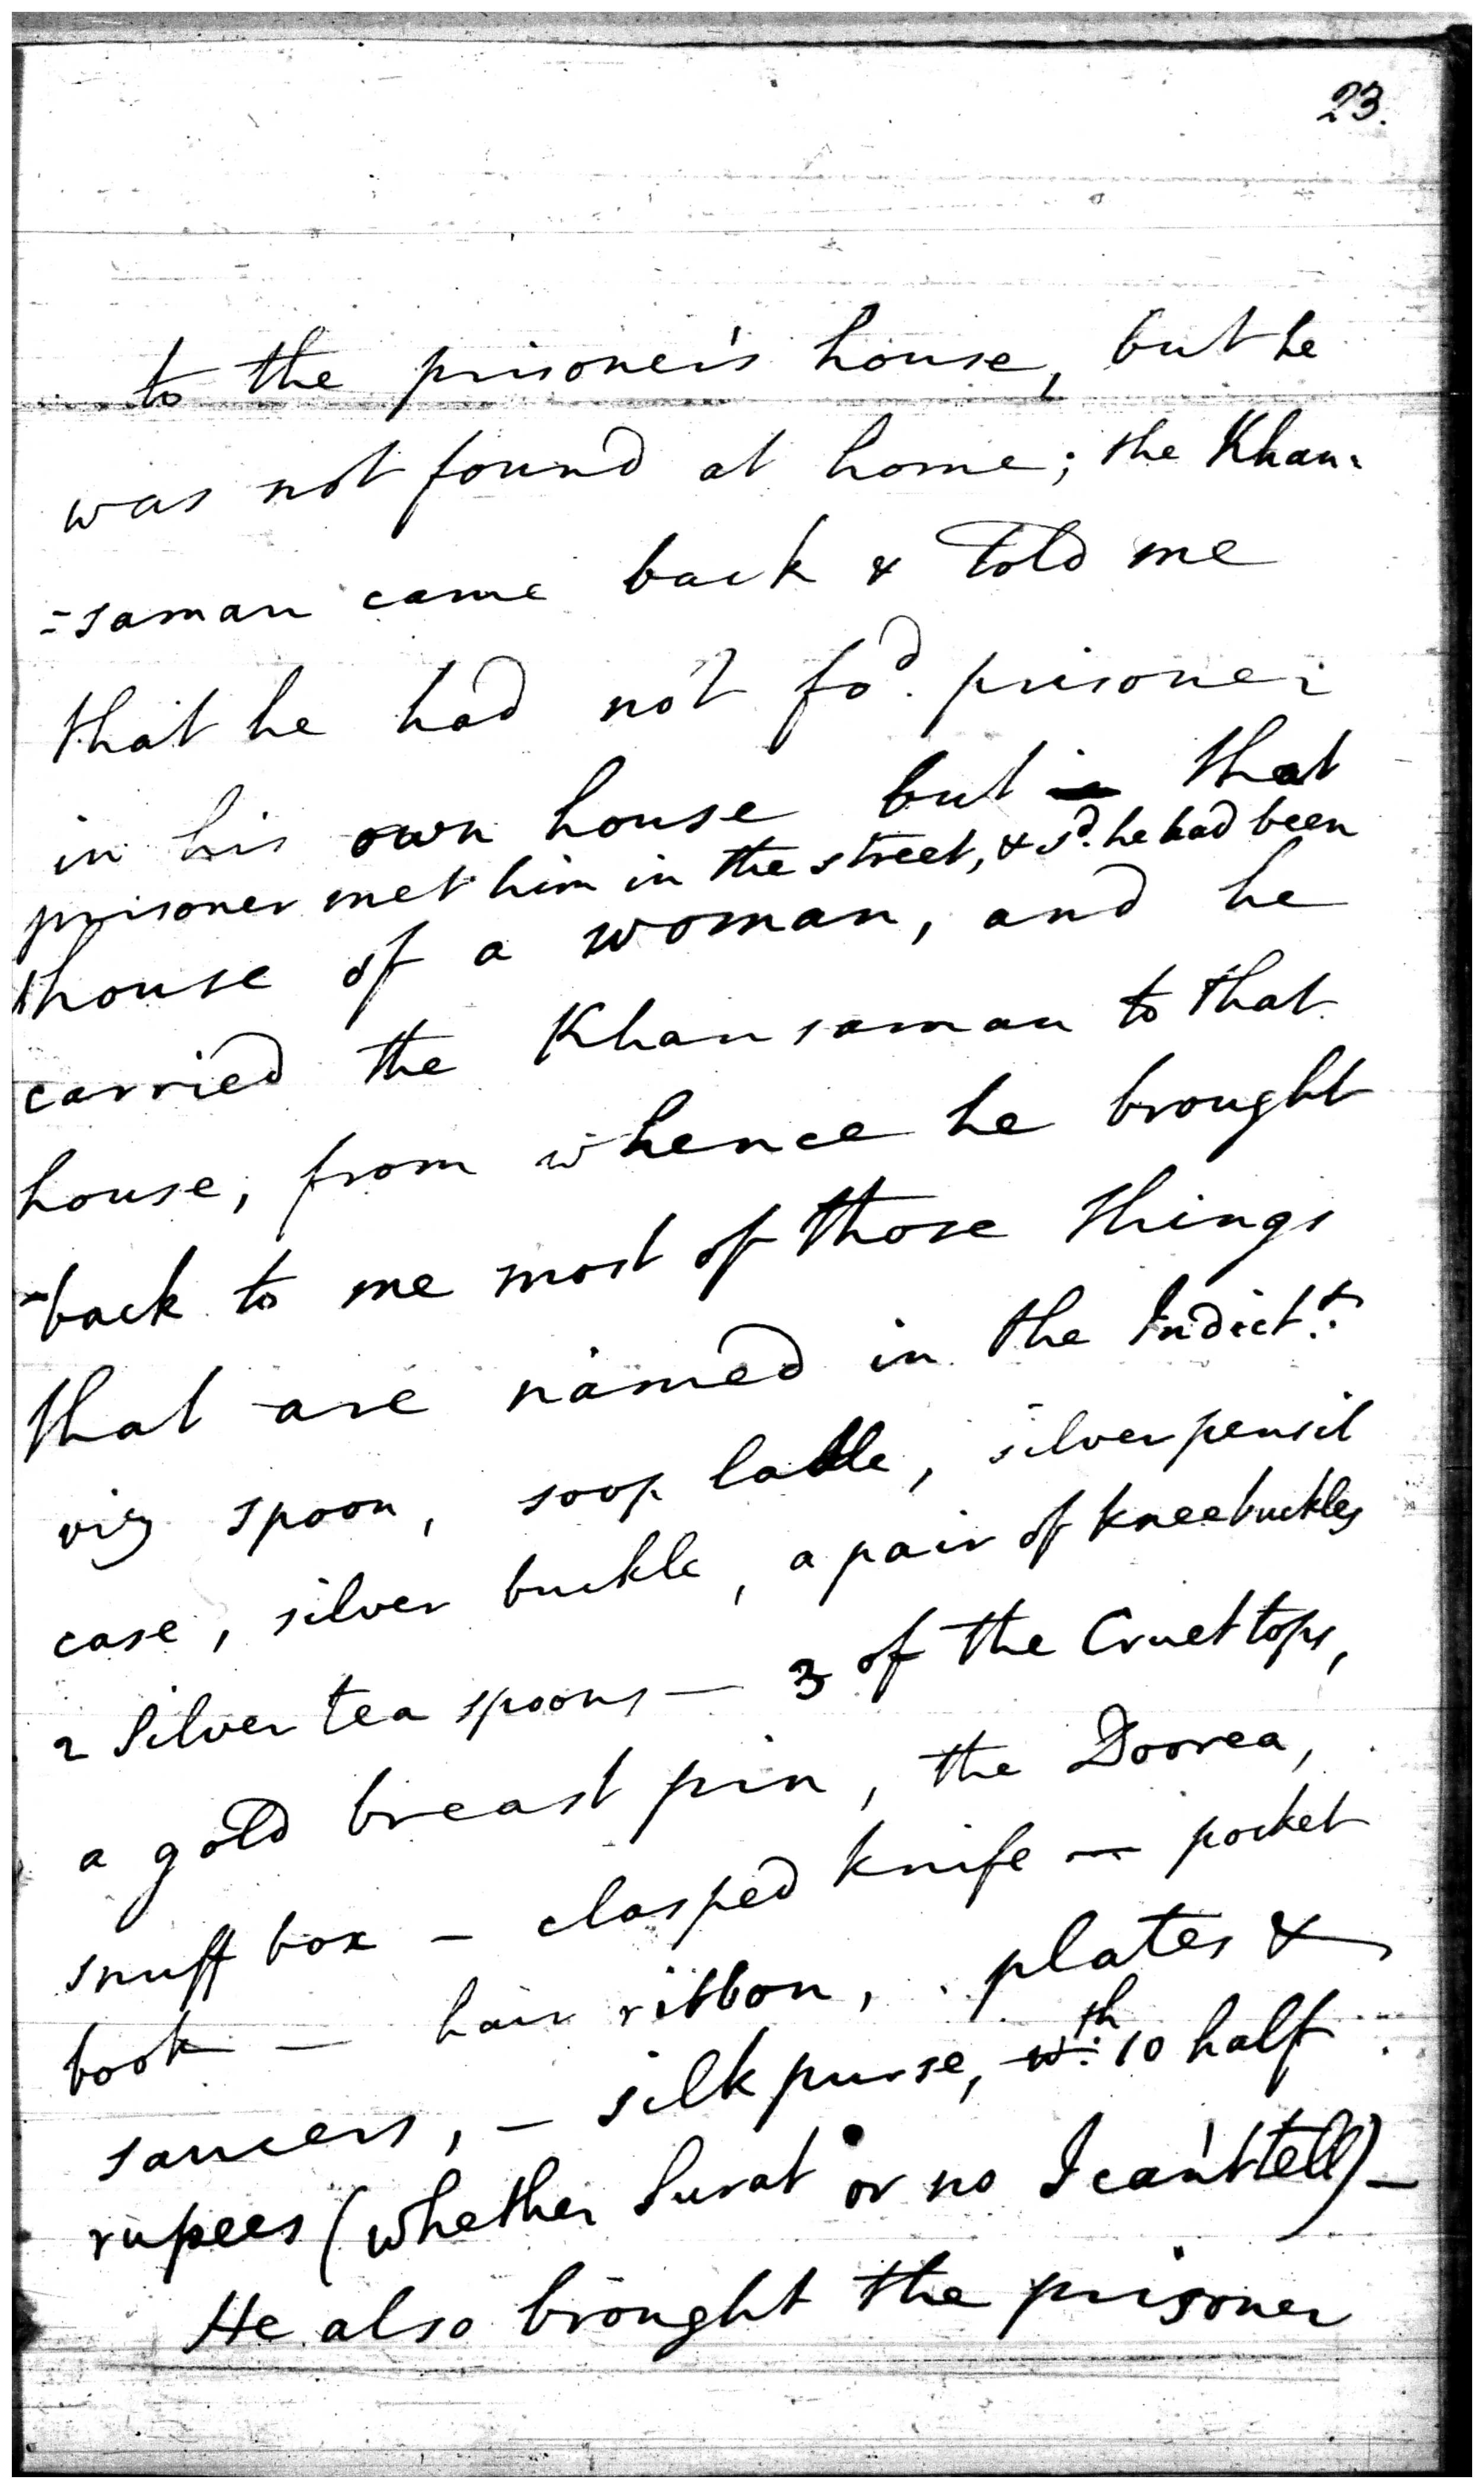 23.
to the prisoner's house, but he
was not found at home; the Khan=
=saman came back & told me
that he had not fo.d prisoner
in his own house but that
prisoner met him in the street, & s.d he had been
house of a woman, and he
carried the Khansaman to that
house, from whence he brought
back to me most of those things
that are named in the Indict.t
viz spoon, soop ladle, silver pensil
case, silver buckle, a pair of kneebuckles
2 Silver tea spoons — 3 of the Cruet tops,
a gold breast pin, the Doorea,
snuff box — clasped knife — pocket
book — hair ribbon, plates &
saucers, — silk purse, w.th 10 half
rupees (whether Surat or no I can't tell) —
He also brought the prisoner